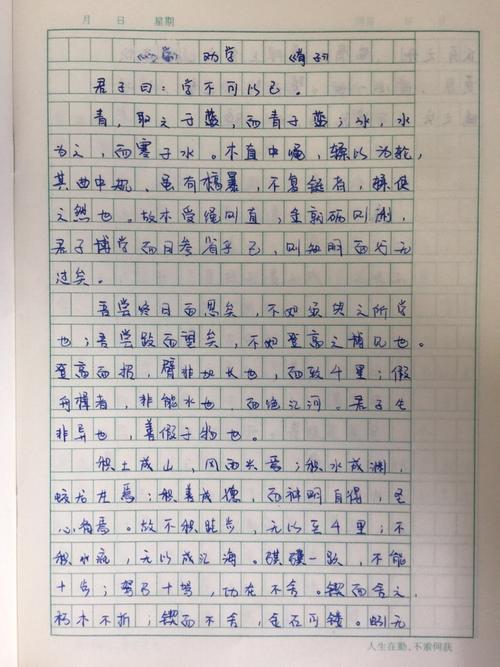 月 日 星期
劝学 《荀子》
君子曰：学不可以已。
青，取之于蓝，而青于蓝；冰，水
为之，而寒于水。木直中绳，輮以为轮，
其曲中规，虽有槁暴，不复挺者，輮使
之然也。故木受绳则直，金就砺则利，
君子博学而日参省乎己，则知明而行无
过矣。
吾尝终日而思矣，不如须臾之所学
也；吾尝跂而望矣，不如登高之博见也。
登高而招，臂非加长也，而致千里；假
舟楫者，非能水也，而绝江河。君子生
非异也，善假于物也。
积土成山，风雨兴焉；积水成渊，
蛟龙生焉；积善成德，而神明自得，圣
心备焉。故不积跬步，无以至千里；不
积水流，无以成江海。骐骥一跃，不能
十步；驽马十驾，功在不舍。锲而舍之，
朽木不折；锲而不舍，金石可镂。蚓无
人生在勤，不索何获